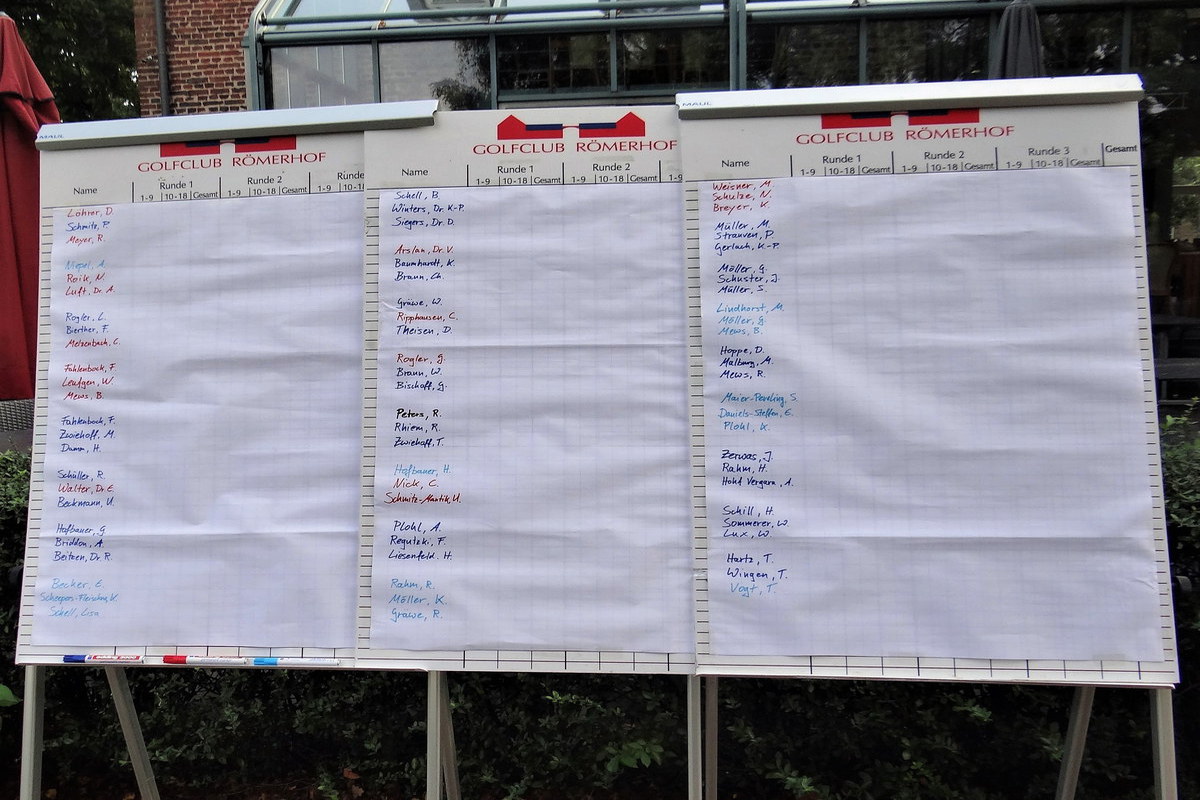 MAUL
GOLFCLUB RÖMERHOF
Name
Runde 1
Runde 2
Runde
1-9 10-18 Gesamt 1-9 10-18 Gesamt 1-9
Löhrer, D.
Schmitz, P.
Meyer, R.
Niepel, A.
Roik, N.
Luft, Dr. A.
Rogler, L.
Bierther, F.
Metzenbach, C.
Fahlenbock, F
Leufgen, W.
Mews, B.
Fahlenbock, F.
Zwiehoff, M.
Damm, H.
Schüller, R.
Walter, Dr. E.
Beckmann, U.
Hofbauer, G
Briddon, A.
Beitzen, Dr. R.
Becker, E.
Schell, Lisa
GOLFCLUB RÖMERHOF
Name
Runde 1
Runde 2
1-9 10-18 Gesamt 1-9 10-18 Gesamt 1-9
Schell, B.
Winters, Dr. K-P.
Siegers, Dr. D.
Arslan, Dr. V.
Baumhardt, K.
Braun, Ch.
Gräwe, W.
Ripphausen, C.
Theisen, D.
Rogler, G.
Braun, W.
Bischoff, G.
Peters, R.
Rhiem, R.
Zwiehoff, T.
Hofbauer, H.
Nick, C.
Schmitz-Mantik, U.
Plohl, A.
Regutzki, F.
Liesenfeld, H.
Rahm, R.
Möller, K.
Gräwe, R.
MAUL
GOLFCLUB RÖMERHOF
Name
Runde 1
Runde 2
Runde 3
Gesamt
1-9 10-18 Gesamt 1-9 10-18 Gesamt 1-9 10-18 Gesamt
Weisner, M.
Schulze, N.
Breyer, K.
Müller, M.
Strauven, P.
Gerlach, K-P.
Möller, G.
Schuster, J.
Müller, S.
Lindhorst, M.
Möller, G.
Mews, B.
Hoppe, D.
Malburg, M.
Mews, R.
Daniels-Steffen, E.
Plohl, K.
Zerwas, J.
Rahm, H.
Hohd Vergara, A.
Schill, H.
Sommerer, W
Lux, W.
Hartz, T.
Wingen, T.
Vogt, T.